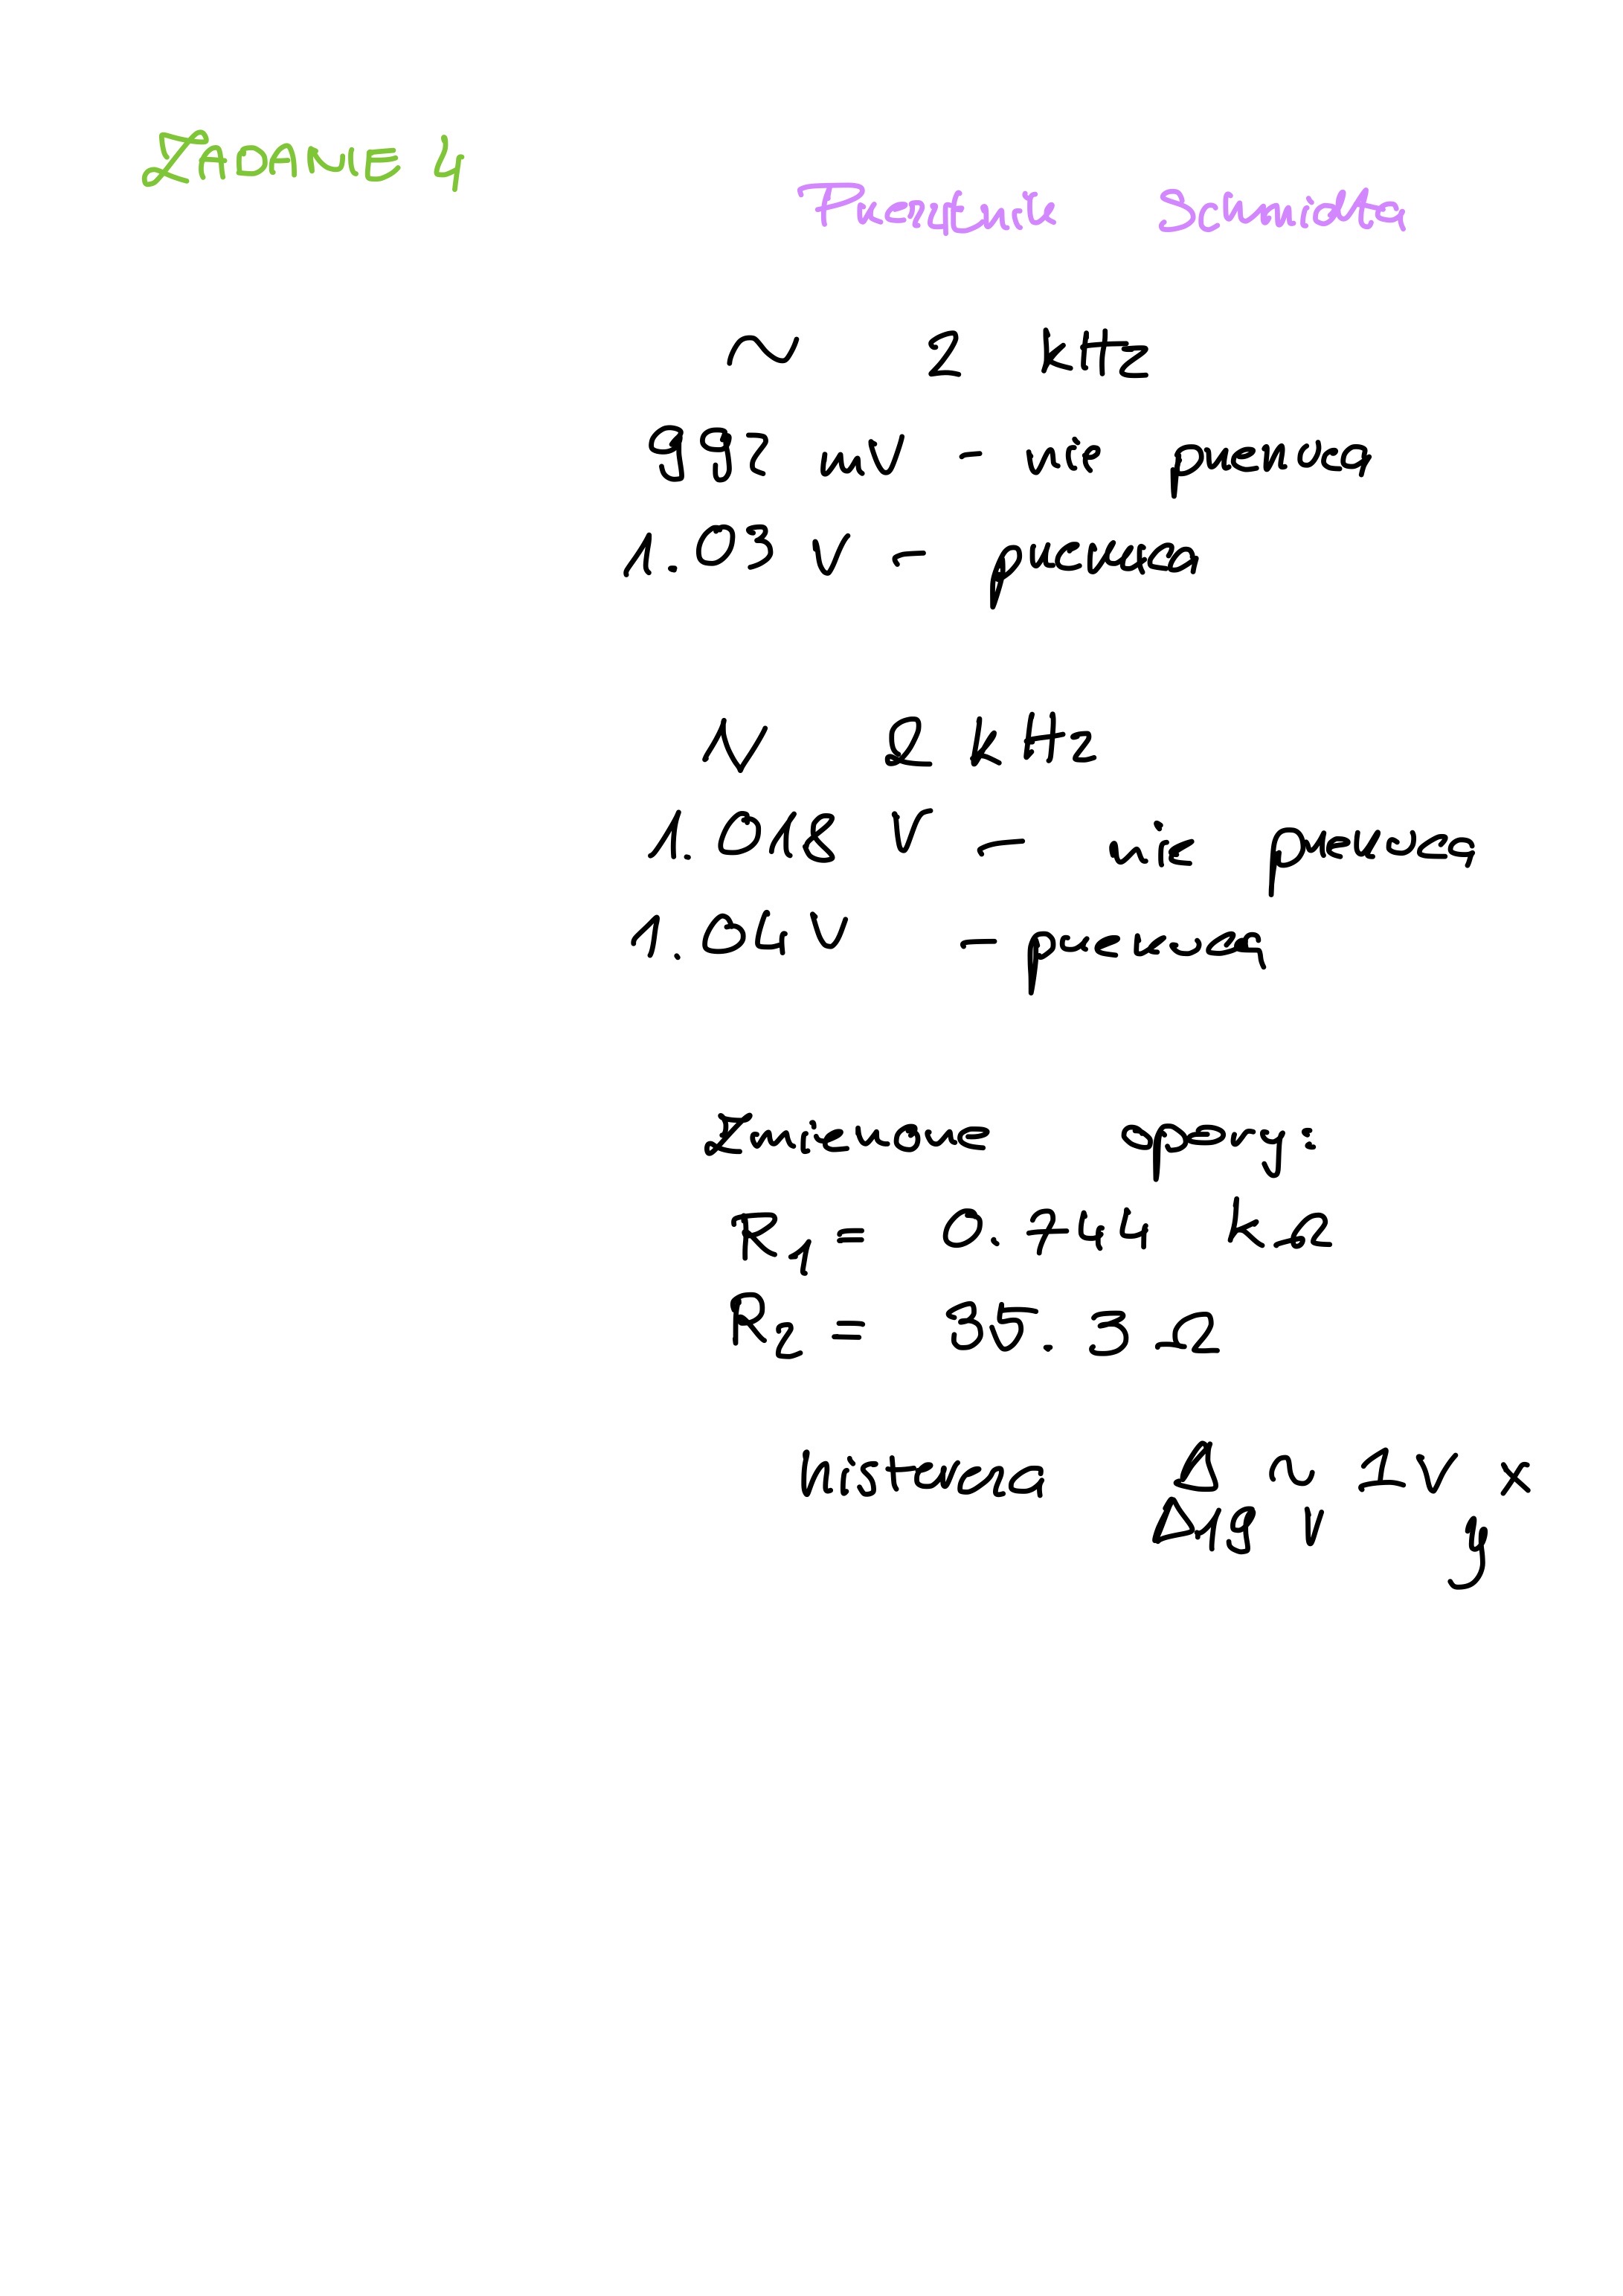 ZADANIE 4
Przerzutnik Schmidta
~ 2 kHz
992 mV - nie przerzuca
1.03 V - przerzuca
2 kHz
1.018 V - nie przerzuca
1.04 V - przerzuca
Zmierzone opory:
R₁ = 0.744 kΩ
R₂ = 35.3 Ω
histereza Δ ~ 1V x
Δ19 V y